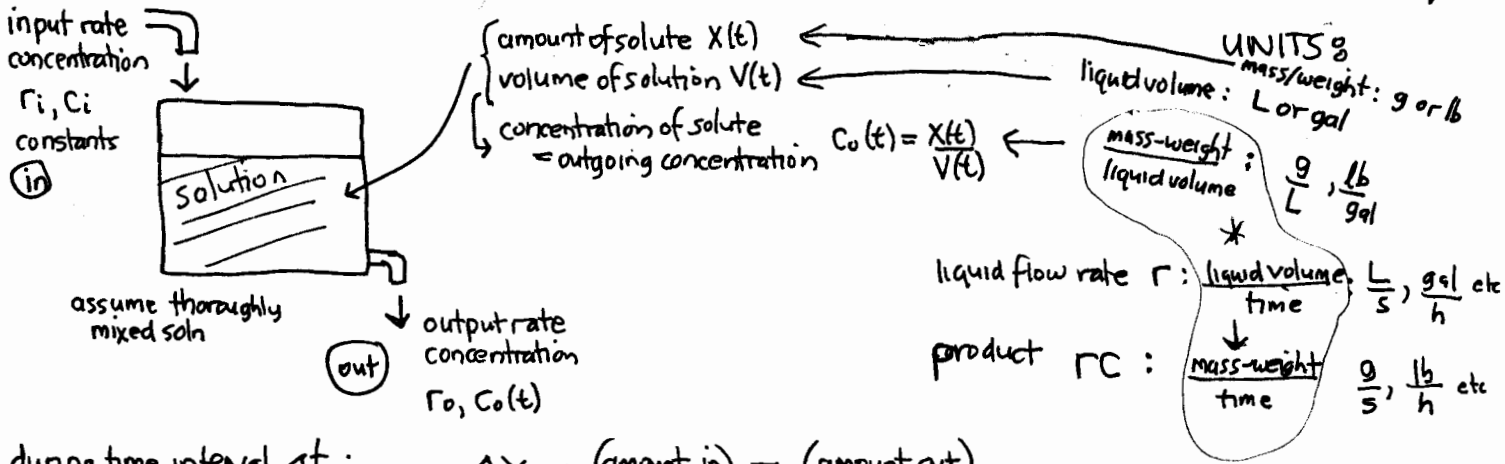 input rate
concentration
ri, Ci
constants
in
solution
assume thoroughly
mixed soln
out
output rate
concentration
ro, Co(t)
amount of solute X(t)
volume of solution V(t)
concentration of solute
= outgoing concentration
Co(t) = X(t)/V(t)
UNITS:
mass/weight: g or lb
liquid volume: L or gal
mass-weight/liquid volume : g/L, lb/gal
*
liquid flow rate r: liquid volume/time : L/s, gal/h etc
product rc : mass-weight/time g/s, lb/h etc
during time interval Δt: ΔX (amount in) − (amount out)